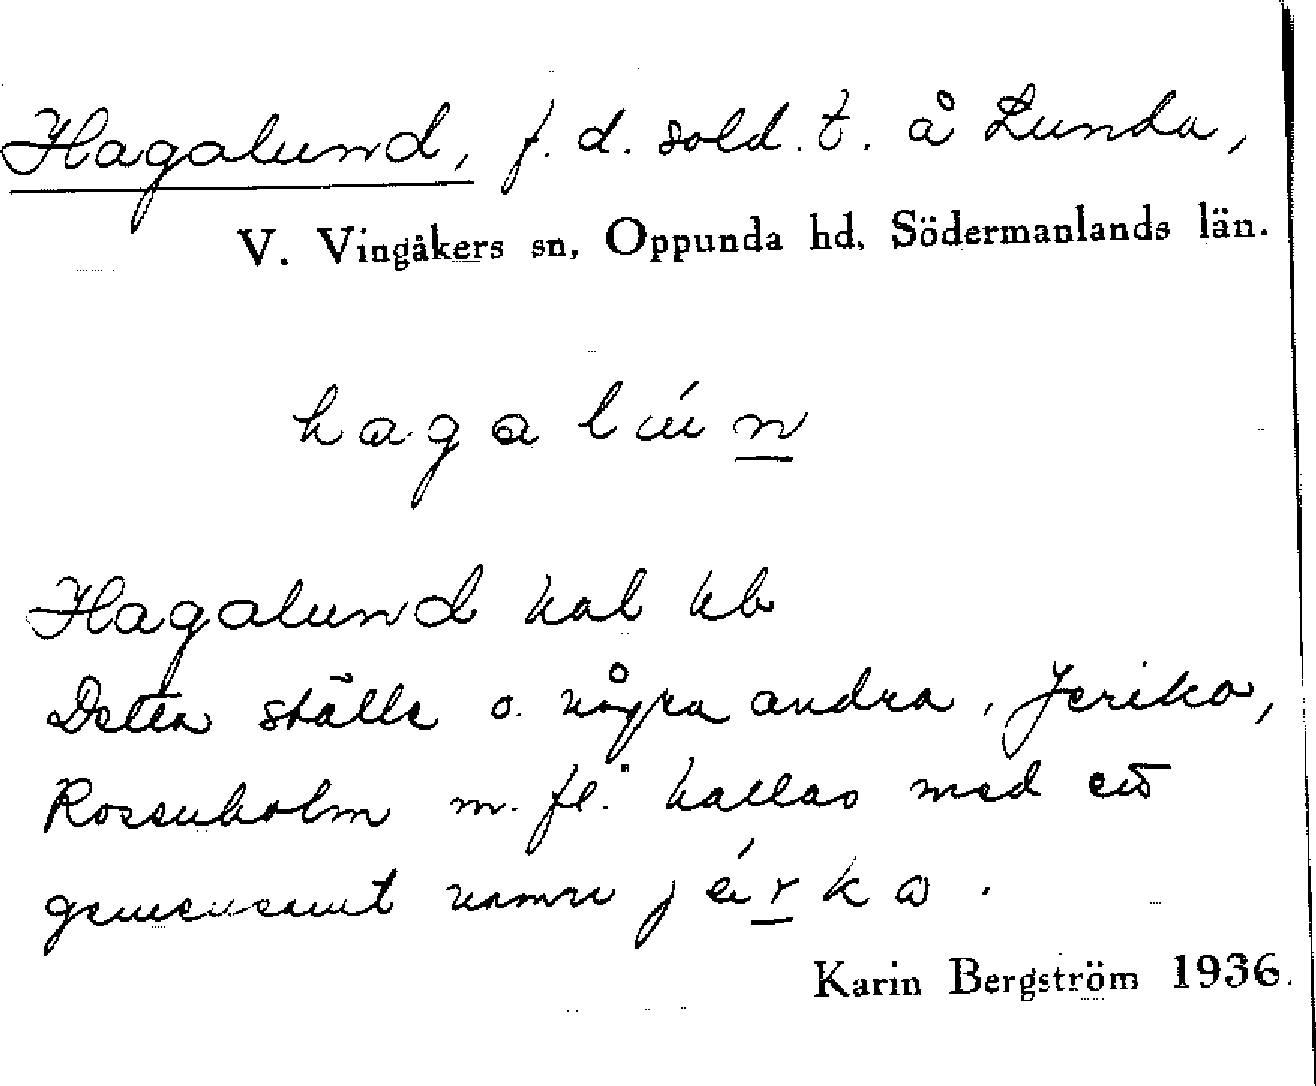 Hagalund, f. d. sold. t. å Lunda,
V. Vingåkers sn, Oppunda hd, Södermanlands län.
hagalún
Hagalund kal kb
Detta ställe o. några andra, Jeriko,
Rosenholm m. fl. kallas med ett
gemensamt namn jérka.
Karin Bergström 1936.